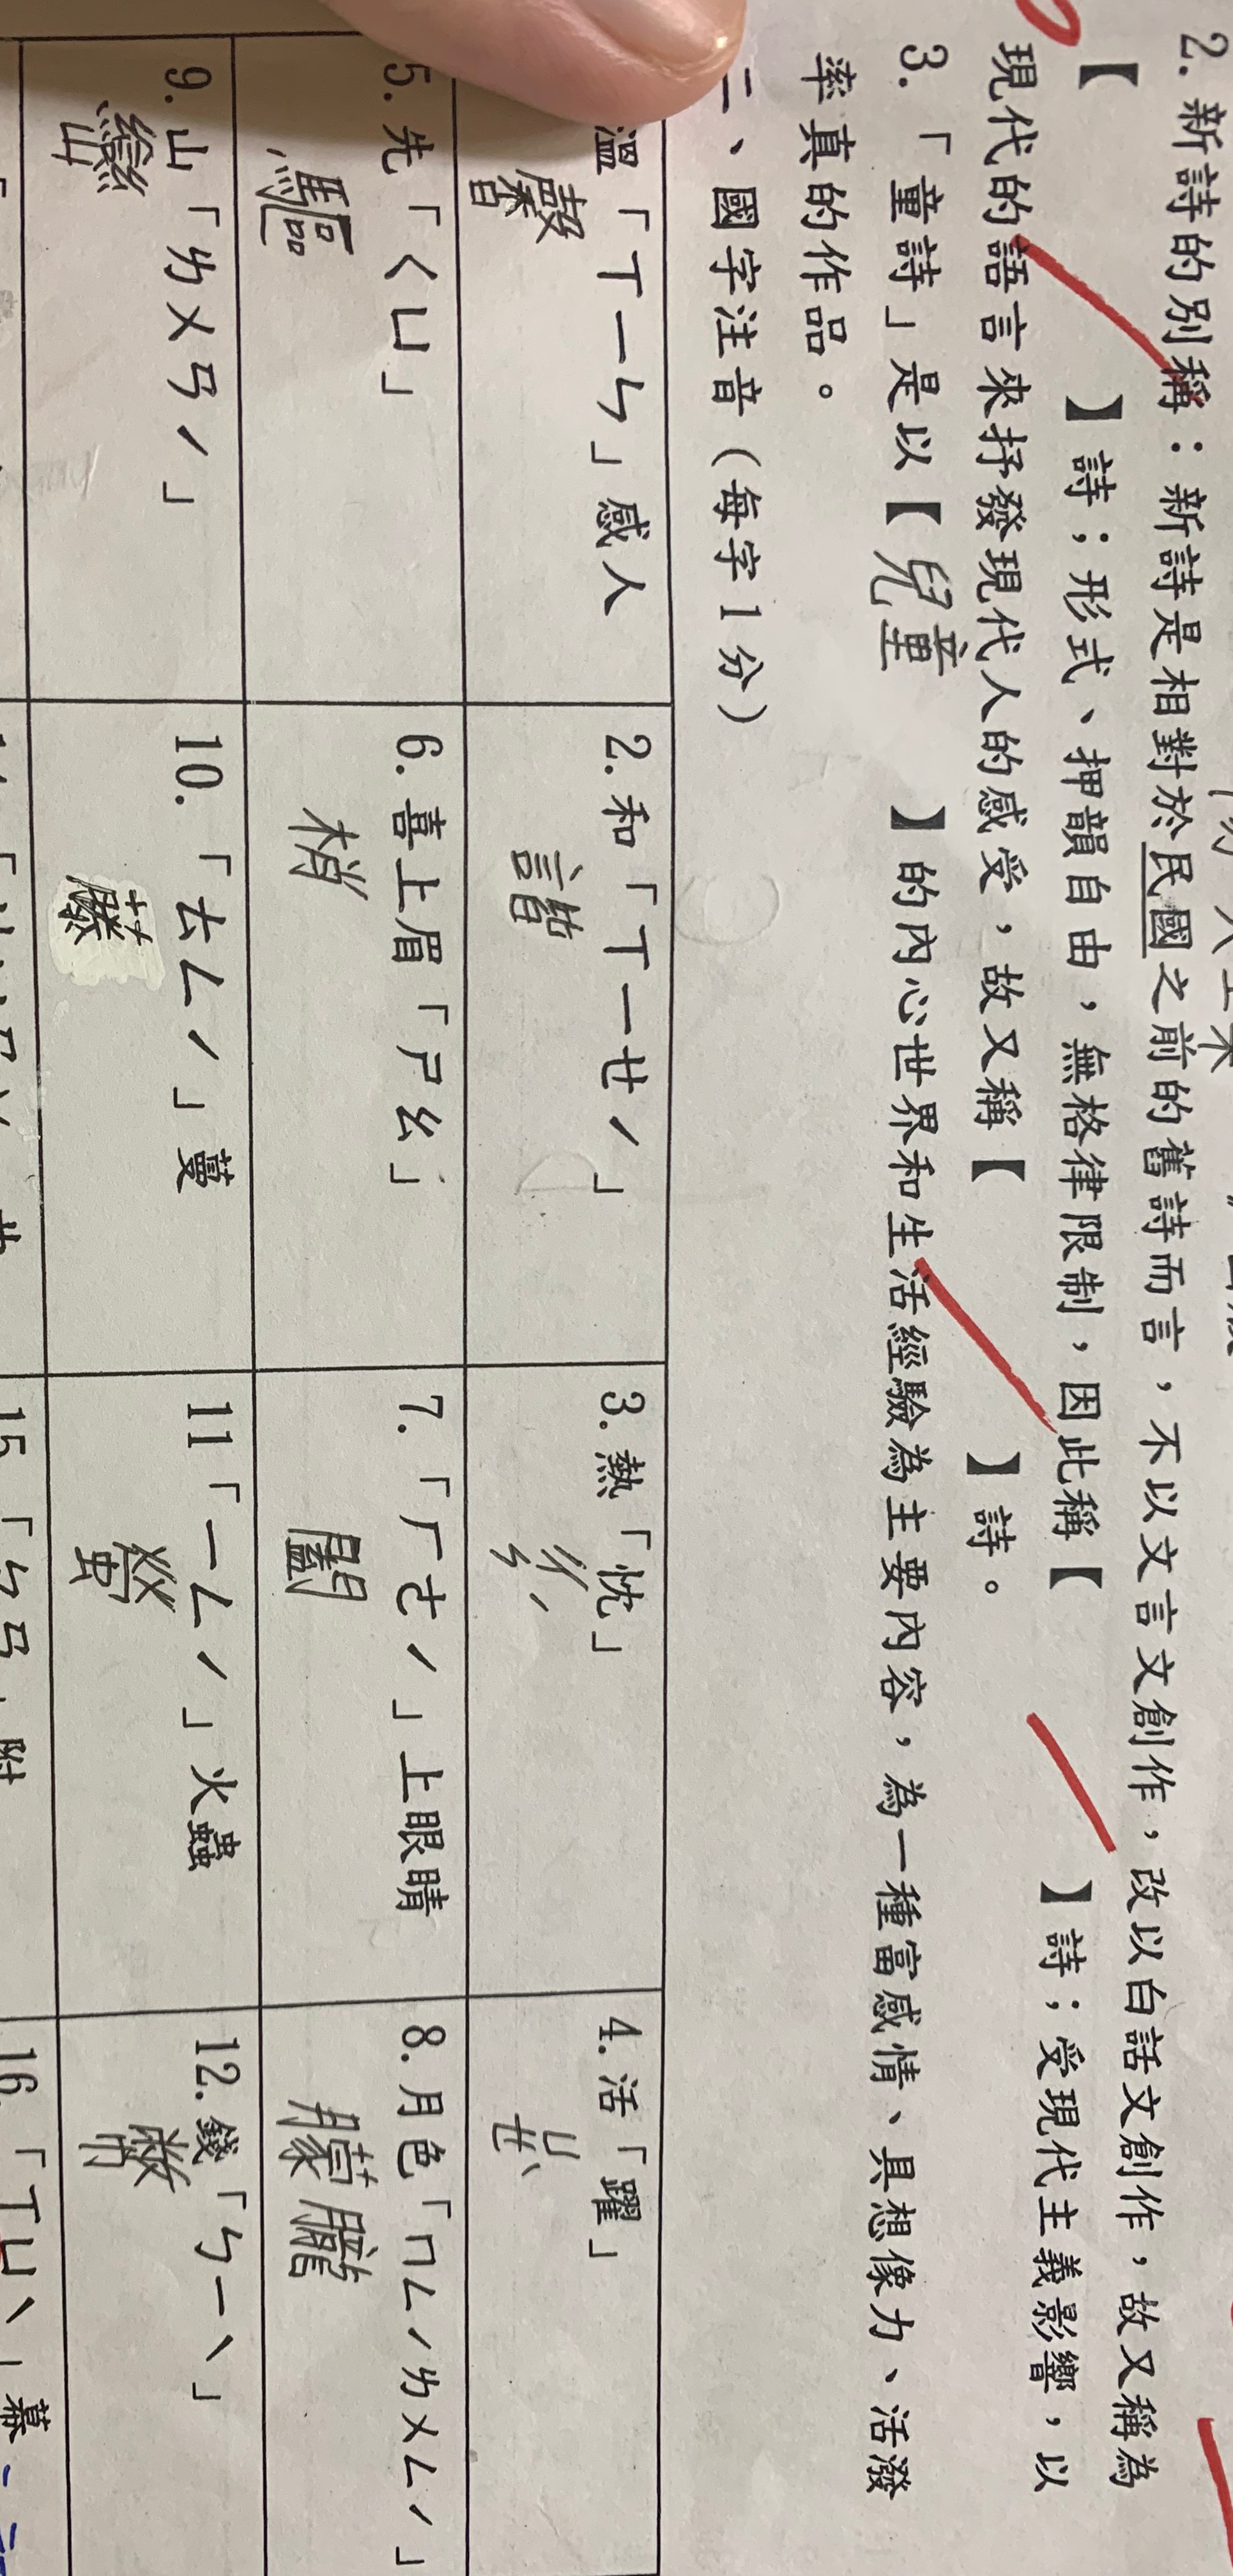 2. 新詩的別稱：新詩是相對於民國之前的舊詩而言，不以文言文創作，改以白話文創作，故又稱為
【 】詩；形式、押韻自由，無格律限制，因此稱【 】詩；受現代主義影響，以
現代的語言來抒發現代人的感受，故又稱【 】詩。
3. 「童詩」是以【兒童】的內心世界和生活經驗為主要內容，為一種富感情、具想像力、活潑
率真的作品。
三、國字注音（每字1分）
溫「ㄒㄧㄣ」感人
馨
2. 和「ㄒㄧㄝˊ」
諧
3. 熱「忱」
4. 活「躍」
ㄩㄝˋ
5. 先「ㄑㄩ」
驅
6. 喜上眉「ㄕㄠ」
梢
7. 「ㄏㄜˊ」上眼睛
闔
8. 月色「ㄇㄥˊㄌㄨㄥˊ」
朦朧
9. 山「ㄌㄨㄢˊ」
巒
10. 「ㄊㄥˊ」蔓
藤
11「ㄧㄥˊ」火蟲
螢
12. 錢「ㄅㄧˋ」
幣
15「ㄣㄢ」附
16.「ㄒㄩˋ」幕